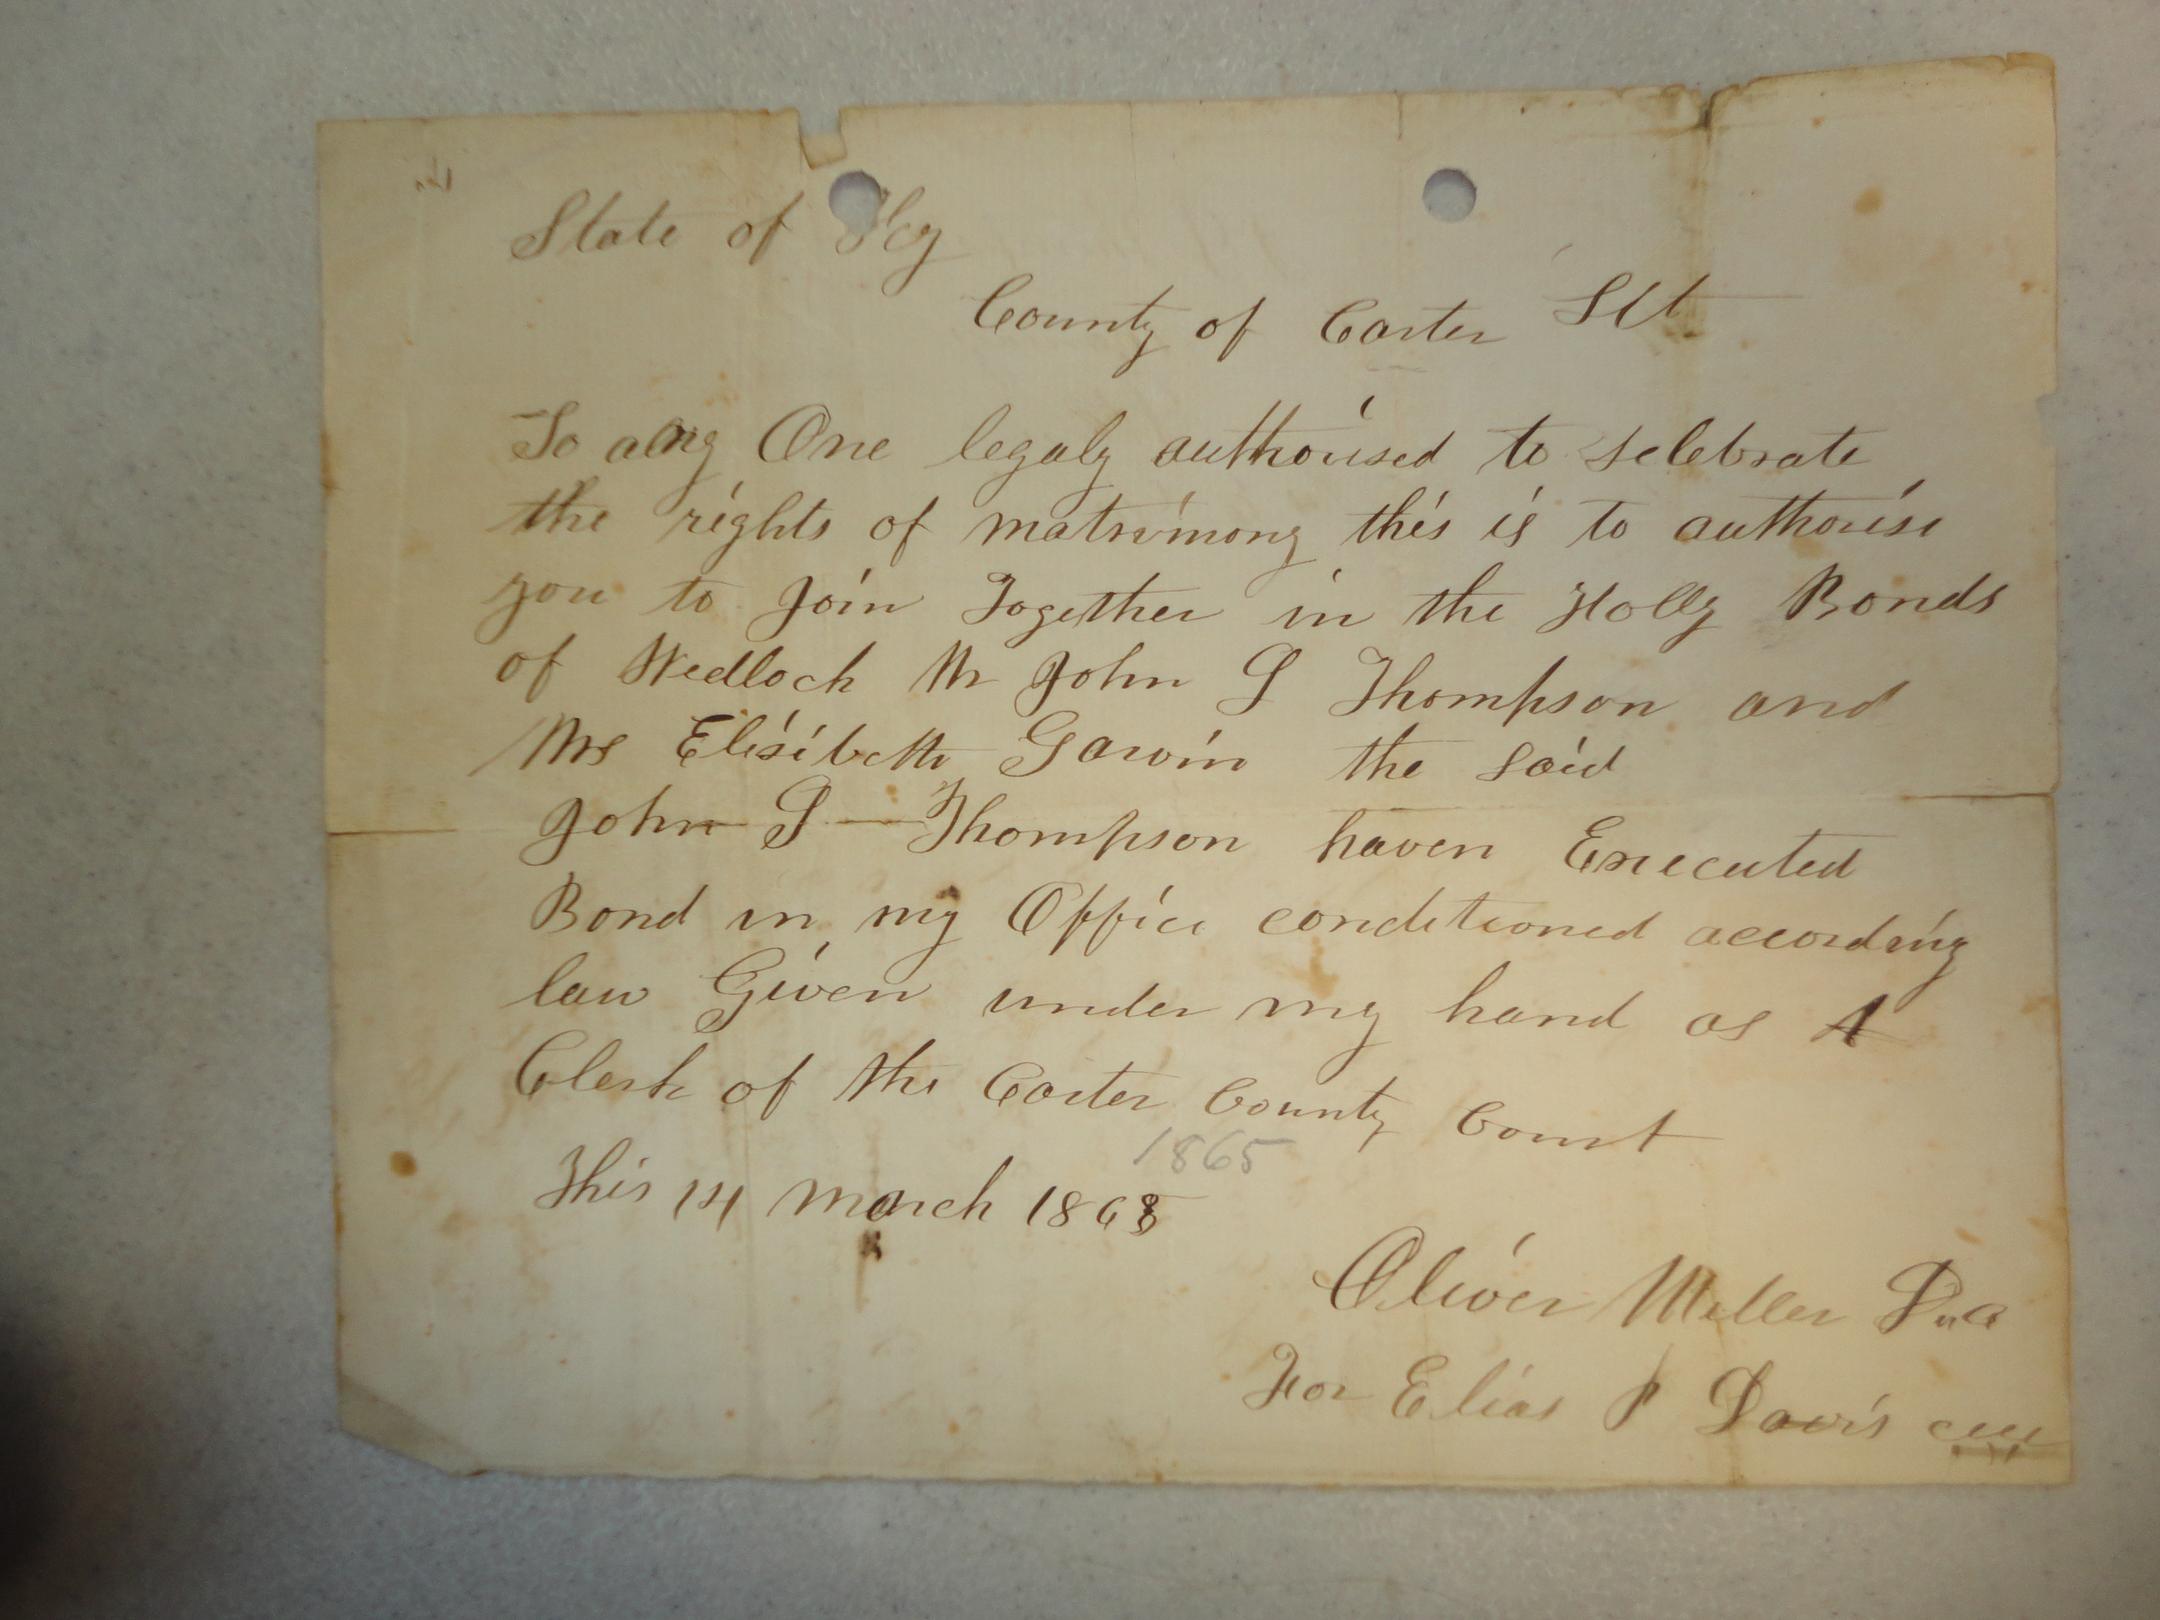 State of Ky
County of Carter Sct
To any One legaly authorised to selebrate
the rights of matrimony this is to authorise
you to Join Together in the Holly Bonds
of Wedlock Mr John S Thompson and
Mrs Elisibeth Garvin the said
John S Thompson haven Executed
Bond in my Office conditioned according
law Given under my hand as
Clerk of the Carter County Court
1865
This 14 march 1865
Oliver Miller
For Elias P Davis